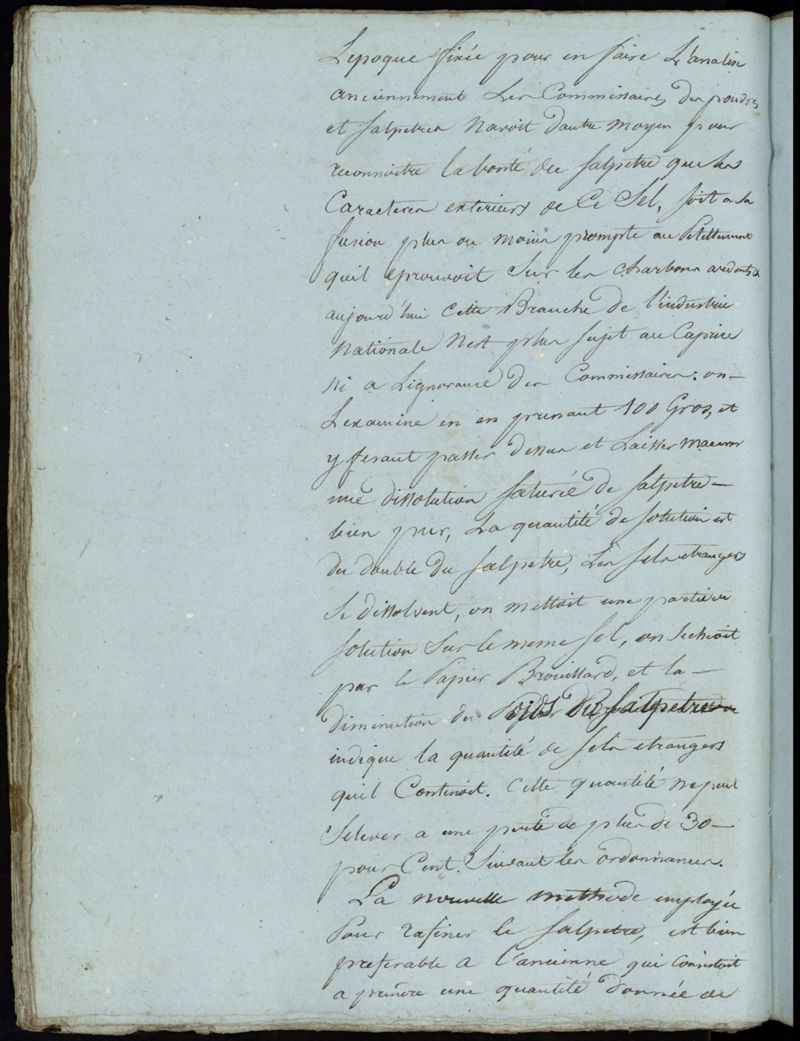 L'epoque fixée pour en faire L'analise
anciennement Les Commissaires des poudres
et salpetres Navoit dautre moyen pour
reconnoitre la bonté du salpetre que les
Caracteres exterieurs de Ce Sel, soit a sa
fusion plus ou moins prompte au Petillement
quil eprouvoit sur les charbons ardents
aujourd'hui cette Branche de l'industrie
Nationale N'est plus sujet au Caprice
ni a L'ignorance des Commissaires. on
L'examine en en prenant 100 Gros, et
y fesant passer dessus et Laisser
une dissolution saturée de salpetre
bien pur, La quantité de solution est
du double du salpetre, Les sels etrangers
se dissolvent, on mettoit une partie de
solution sur le meme sel, on sechoit
par le Papier Brouillard, et la
diminution du Poids du salpetre
indique la quantité de sels etrangers
quil Contenoit. Cette quantité ne peut
S'elever a une perte de plus de 30
pour Cent. Suivant les ordonnances.
La nouvelle methode employée
Pour rafiner le salpetre, est bien
preferable a l'ancienne qui Consistoit
a prendre une quantité donnée de